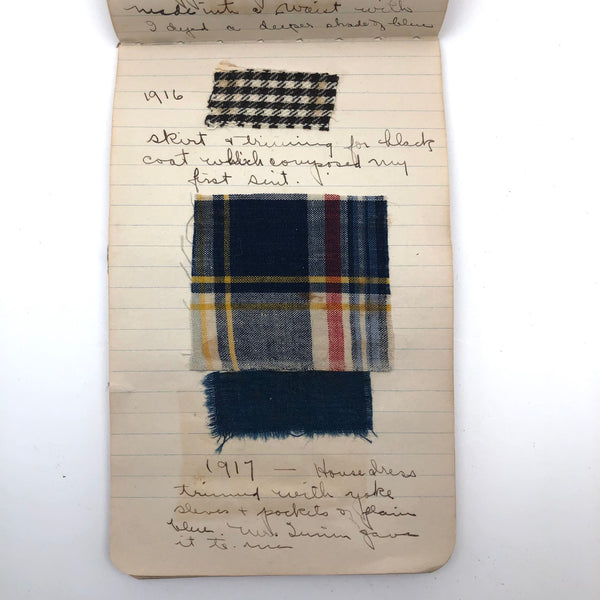 made into a waist with
I dyed a deeper shade of blue
1916
skirt + trimming for black
coat which composed my
first suit.
1917 — Housedress
trimmed with yoke
sleves + pockets of plain
blue. Mrs. gave
it to me